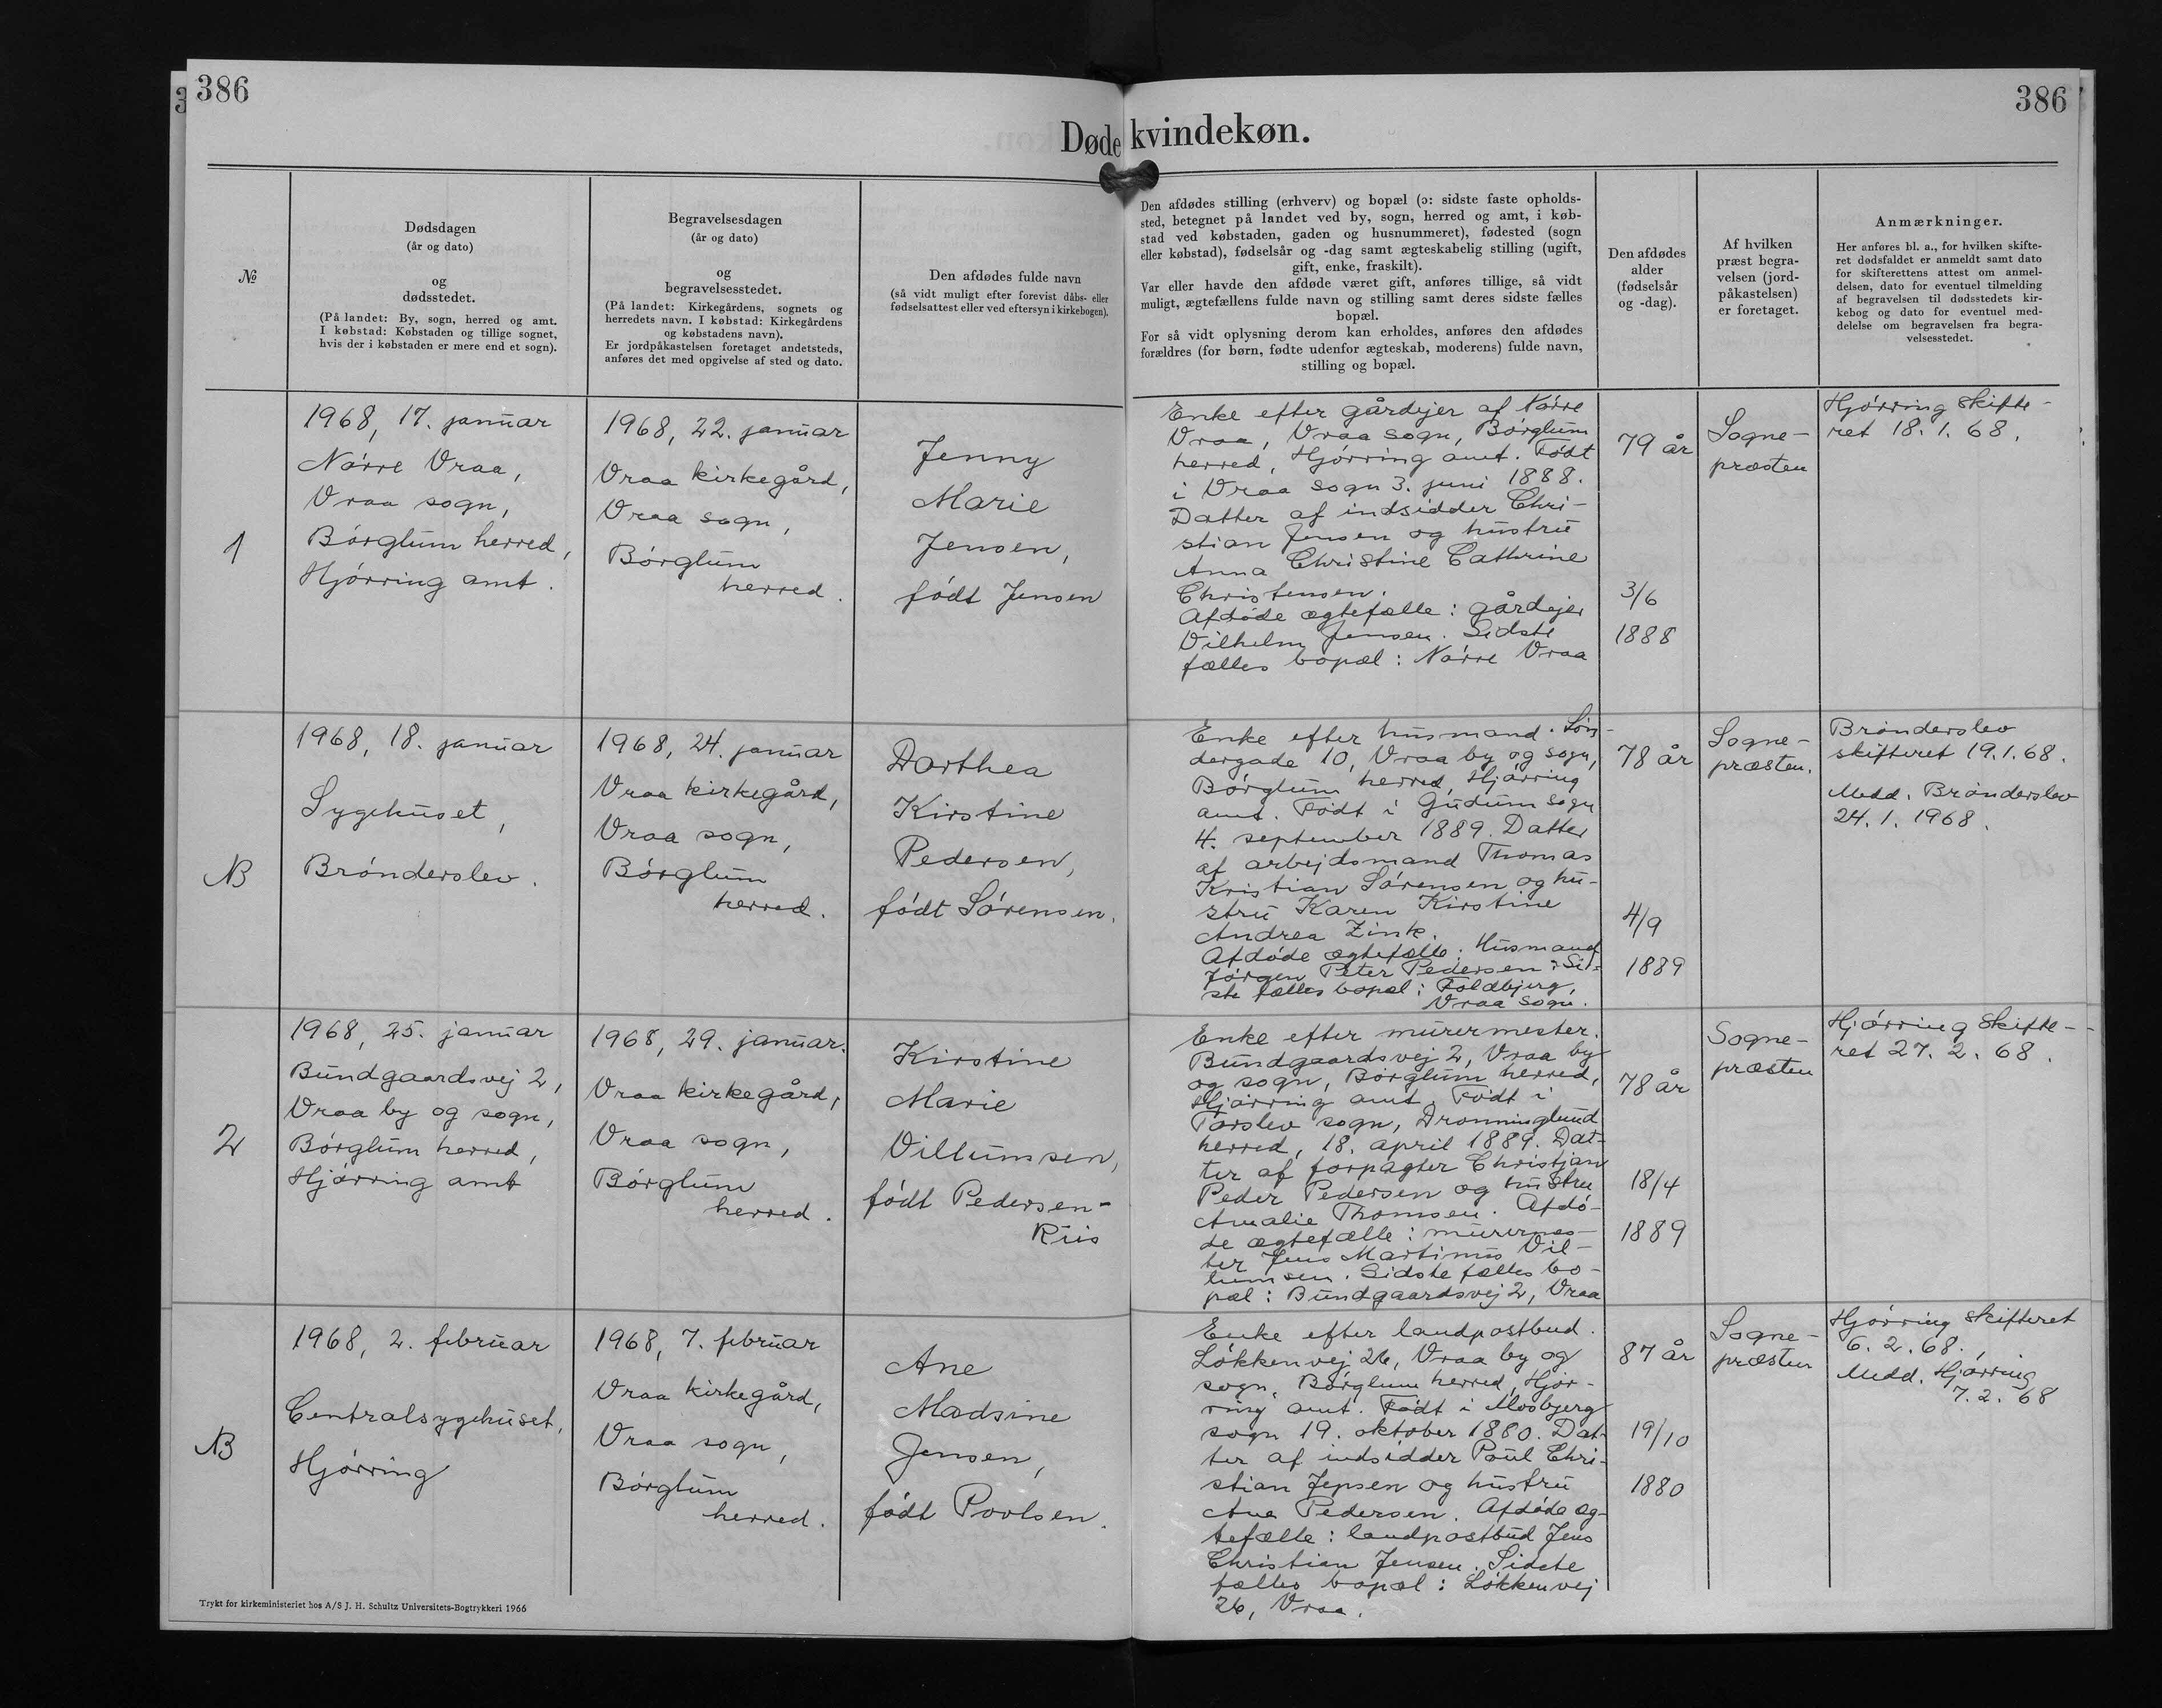 386
386
Døde kvindekøn.
№
Dødsdagen
(år og dato)
og
dødsstedet.
(På landet: By, sogn, herred og amt.
I købstad: Købstaden og tillige sognet,
hvis der i købstaden er mere end et sogn).
Begravelsesdagen
(år og dato)
og
begravelsesstedet.
(På landet: Kirkegårdens, sognets og
herredets navn. I købstad: Kirkegårdens
og købstadens navn).
Er jordpåkastelsen foretaget andetsteds,
anføres det med opgivelse af sted og dato.
Den afdødes fulde navn
(så vidt muligt efter forevist dåbs- eller
fødselsattest eller ved eftersyn i kirkebogen).
Den afdødes stilling (erhverv) og bopæl (ɔ: sidste faste opholds-
sted, betegnet på landet ved by, sogn, herred og amt, i køb-
stad ved købstaden, gaden og husnummeret), fødested (sogn
eller købstad), fødselsår og -dag samt ægteskabelig stilling (ugift,
gift, enke, fraskilt).
Var eller havde den afdøde været gift, anføres tillige, så vidt
muligt, ægtefællens fulde navn og stilling samt deres sidste fælles
bopæl.
For så vidt oplysning derom kan erholdes, anføres den afdødes
forældres (for børn, fødte udenfor ægteskab, moderens) fulde navn,
stilling og bopæl.
Den afdødes
alder
(fødselsår
og -dag).
Af hvilken
præst begra-
velsen (jord-
påkastelsen)
er foretaget.
Anmærkninger.
Her anføres bl. a., for hvilken skifte-
ret dødsfaldet er anmeldt samt dato
for skifterettens attest om anmel-
delsen, dato for eventuel tilmelding
af begravelsen til dødsstedets kir-
kebog og dato for eventuel med-
delelse om begravelsen fra begra-
velsesstedet.
1
1968, 17. januar
Nørre Vraa,
Vraa sogn,
Børglum herred,
Hjørring amt.
1968, 22. januar
Vraa kirkegård,
Vraa sogn,
Børglum
herred.
Jenny
Marie
Jensen,
født Jensen
Enke efter gårdejer af Nørre
Vraa, Vraa sogn, Børglum
herred, Hjørring amt. Født
i Vraa sogn 3. juni 1888.
Datter af indsidder Chri-
stian Jensen og hustru
Anna Christine Cathrine
Christensen.
Afdøde ægtefælle: gårdejer
Vilhelm Jensen. Sidste
fælles bopæl: Nørre Vraa
79 år
3/6
1888
Sogne-
præsten
Hjørring skifte-
ret 18.1.68.
NB
1968, 18. januar
Sygehuset,
Brønderslev.
1968, 24. januar
Vraa kirkegård,
Vraa sogn,
Børglum
herred.
Dorthea
Kirstine
Pedersen,
født Sørensen.
Enke efter husmand. Søn-
dergade 10, Vraa by og sogn,
Børglum herred, Hjørring
amt. Født i Gudum sogn
4. september 1889. Datter
af arbejdsmand Thomas
Kristian Sørensen og hu-
stru Karen Kirstine
Andrea Zink.
Afdøde ægtefælle: Husmand
Jørgen Peter Pedersen. Sid-
ste fælles bopæl: Foldbjerg,
Vraa sogn.
78 år
4/9
1889
Sogne-
præsten.
Brønderslev
skifteret 19.1.68.
Medd. Brønderslev
24.1.1968.
2
1968, 25. januar
Bundgaardsvej 2,
Vraa by og sogn,
Børglum herred,
Hjørring amt
1968, 29. januar.
Vraa kirkegård,
Vraa sogn,
Børglum
herred.
Kirstine
Marie
Villumsen,
født Pedersen-
Riis
Enke efter murermester.
Bundgaardsvej 2, Vraa by
og sogn, Børglum herred,
Hjørring amt. Født i
Torslev sogn, Dronninglund
herred, 18. april 1889. Dat-
ter af forpagter Christjan
Peder Pedersen og hustru
Amalie Thomsen. Afdø-
de ægtefælle: murermes-
ter Jens Martinus Vil-
lumsen. Sidste fælles bo-
pæl: Bundgaardsvej 2, Vraa
78 år
18/4
1889
Sogne-
præsten
Hjørring skifte-
ret 27.2.68.
NB
1968, 2. februar
Centralsygehuset,
Hjørring
1968, 7. februar
Vraa kirkegård,
Vraa sogn,
Børglum
herred.
Ane
Madsine
Jensen,
født Povlsen.
Enke efter landpostbud.
Løkkenvej 26, Vraa by og
sogn, Børglum herred, Hjør-
ring amt. Født i Mosbjerg
sogn 19. oktober 1880. Dat-
ter af indsidder Poul Chri-
stian Jepsen og hustru
Ane Pedersen. Afdøde æg-
tefælle: landpostbud Jens
Christian Jensen. Sidste
fælles bopæl: Løkkenvej
26, Vraa.
87 år
19/10
1880
Sogne-
præsten
Hjørring skifteret
6.2.68.
Medd. Hjørring
7.2.68
Trykt for kirkeministeriet hos A/S J. H. Schultz Universitets-Bogtrykkeri 1966